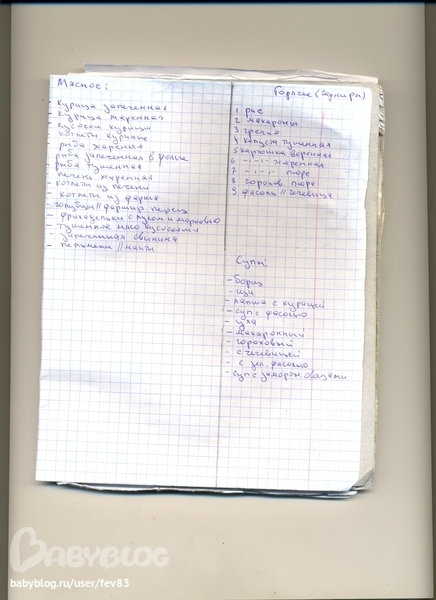 Мясное:
- курица запеченная
- курица жаренная
- кусочки курицы
- котлеты куриные
- рыба жареная
- рыба запеченная в фольге
- рыба тушенная
- печень жаренная
- котлеты из печени
- котлеты из фарша
- голубцы // фаршир перец
- фрикадельки с луком и морковью
- тушенное мясо кусочками
- запеченная свинина
- пельмени // манты
Горячее (гарниры)
1 рис
2 макароны
3 гречка
4 капуста тушенная
5 картошка варенная
6 -ı-ı- жаренная
7 -ı-ı- пюре
8 горохов пюре
9 фасоль // чечевица
Супы:
- борщ
- щи
- лапша с курицей
- суп с фасолью
- уха
- макаронный
- гороховый
- с чечевицей
- с зел. фасолью
- суп с заморож. овощами
BABYBLOG
babyblog.ru/user/fev83